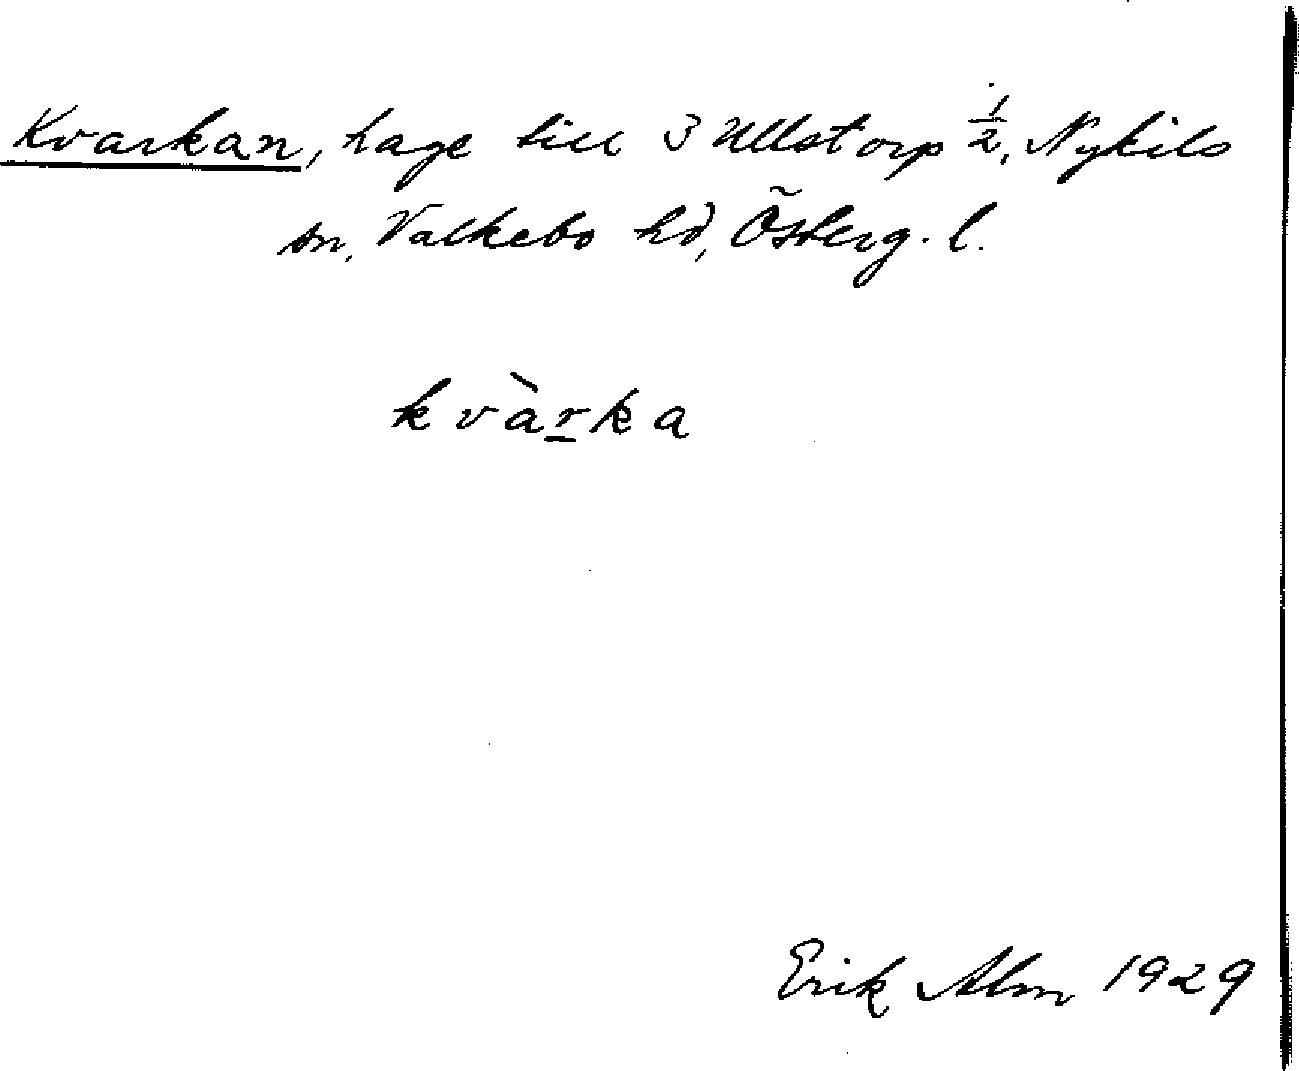 Kvarkan, hage till 3 Ullstorp 1/2, Nykils
sn, Valkebo hd, Österg. l.
kvàr̲ka
Erik Alm 1929